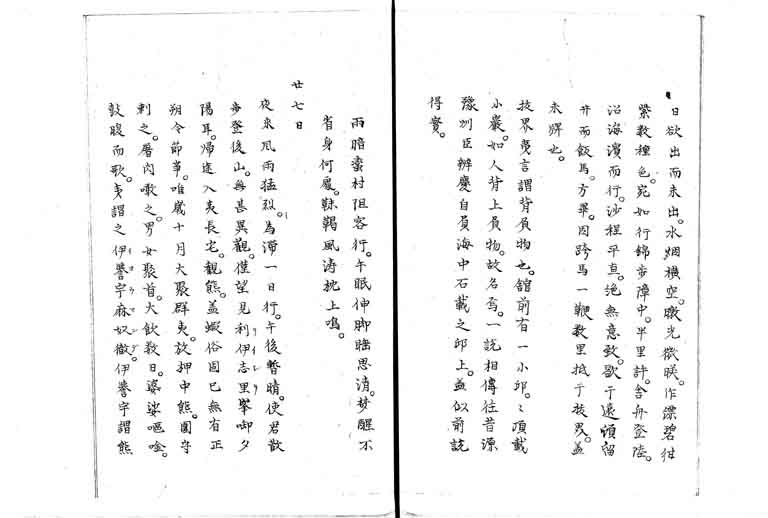 日欲出而未出。水烟横空。暾光微映。作深碧紺
紫数種色。宛如行錦歩障中。半里許。舎舟登陸。
沿海濱而行。沙程平直。絶無意致。歇于遠頓留
井而飯馬。方畢。因跨馬一鞭数里抵于技界。蓋
未牌也。
技界夷言謂背負物也。舘前有一小邱。〻頂載
小巌。如人背上負物。故名焉。一説相傳往昔源
豫州臣辨慶自負海中石載之邱上。蓋似前説
得實。
雨暗蛮村阻客行。午眠伸脚睡思清。夢醒不
省身何処。靺鞨風涛枕上鳴。
廿七日
夜来風雨猛烈。為滞一日行。午後暫晴。使君散
歩登後山。無甚異觀。僅望見利伊志里峯啣夕
陽耳。帰途入夷長宅。観熊。蓋蝦俗固已無有正
朔令節事。唯歳十月大聚群夷。放押中熊圍守
刺之。屠肉噉之。男女聚首。大飲数日。婆娑嘔唫。
鼓腹而歌。夷謂之伊譽宇麻奴徹。伊譽宇謂熊